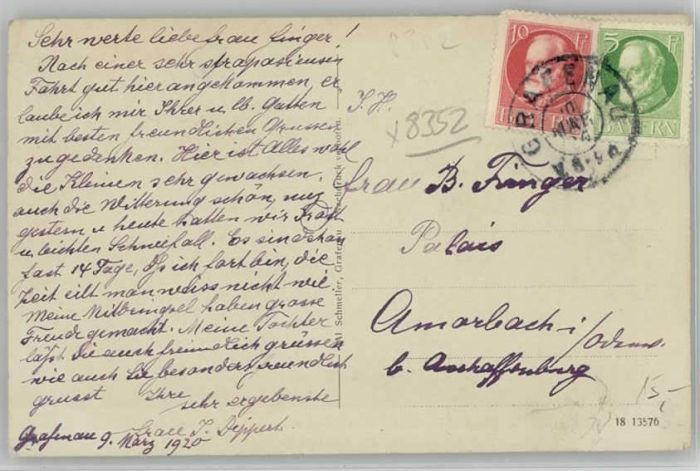 Sehr werte liebe Frau Finger!
Nach einer sehr strapaziösen
Fahrt gut hier angekommen, er
laube ich mir Ihrer u. lb. Gatten
mit besten freundlichen Grüssen
zu gedenken. Hier ist Alles wohl
die Kleinen sehr gewachsen,
auch die Witterung schön, nur
gestern u heute hatten wir Frost
u. leichten Schneefall. Es sind schon
fast 14 Tage, dß ich fort bin, die
Zeit eilt man weiss nicht wie
Meine Mitbringsel haben grosse
Freude gemacht. Meine Tochter
läßt Sie auch freundlich grüssen
wie auch Sie besonders freundlich
grüsst Ihre
sehr ergebenste
J. Dippert
Grafenau 9. März 1920
Schmeller, Grafenau
10 Pf
5 Pf
BAYERN
GRAFENAU
x8352
Frau B. Finger
Palais
Amorbach i/Odenw.
b. Aschaffenburg
15,-
18 13576